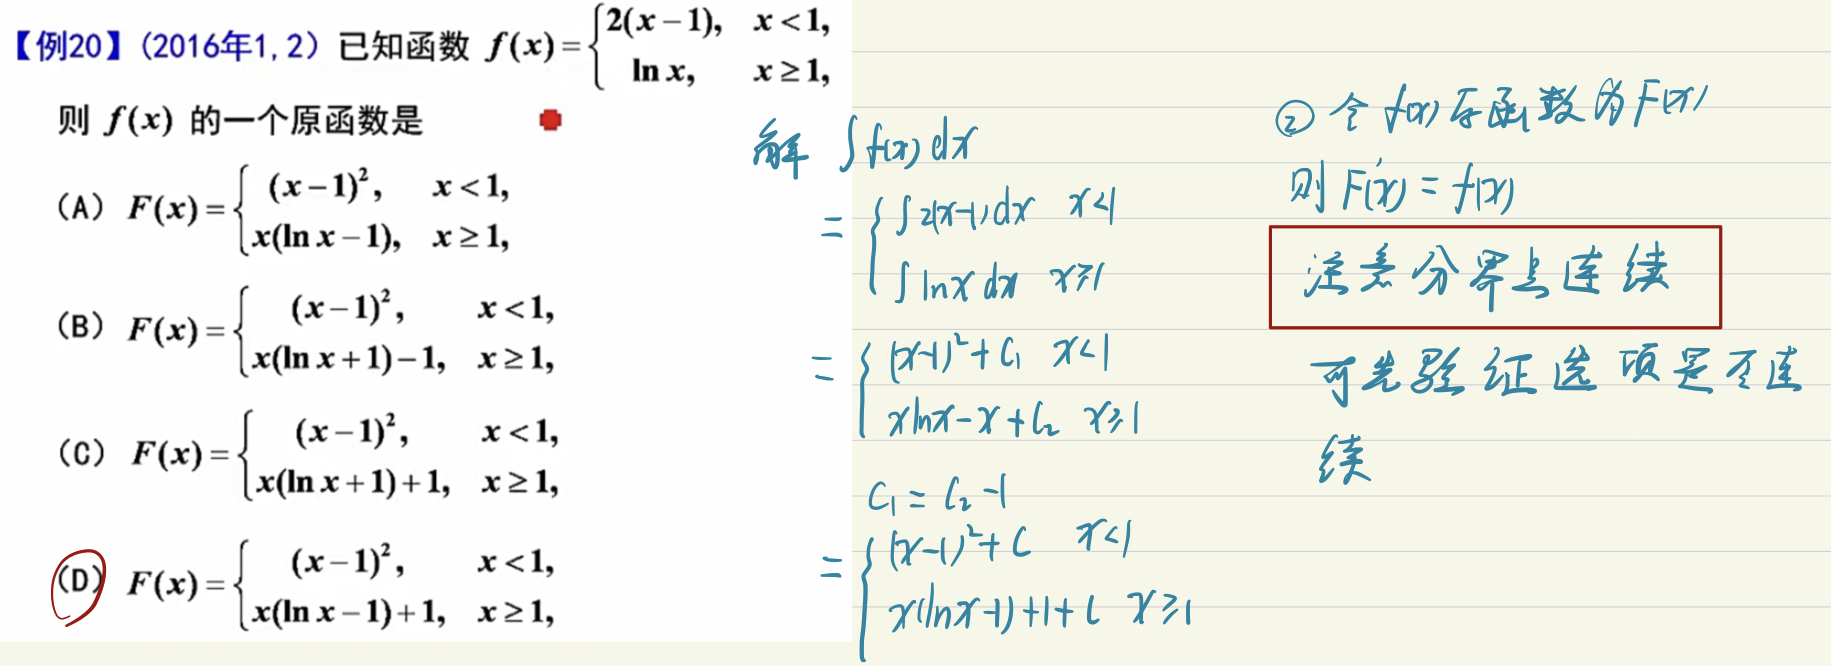 【例20】(2016年1,2) 已知函数 f(x)={2(x−1), x<1,
ln x, x≥1,
则 f(x) 的一个原函数是
(A) F(x)={(x−1)², x<1,
x(ln x−1), x≥1,
(B) F(x)={(x−1)², x<1,
x(ln x+1)−1, x≥1,
(C) F(x)={(x−1)², x<1,
x(ln x+1)+1, x≥1,
(D) F(x)={(x−1)², x<1,
x(ln x−1)+1, x≥1,
解 ∫f(x)dx
={∫2(x-1)dx x<1
∫lnx dx x≥1
={(x-1)²+C₁ x<1
xlnx-x+C₂ x≥1
C₁=C₂-1
={(x-1)²+C x<1
x(lnx-1)+1+C x≥1
② 令 f(x)原函数为F(x)
则 F'(x)=f(x)
注意分界点连续
可先验证选项是否连
续